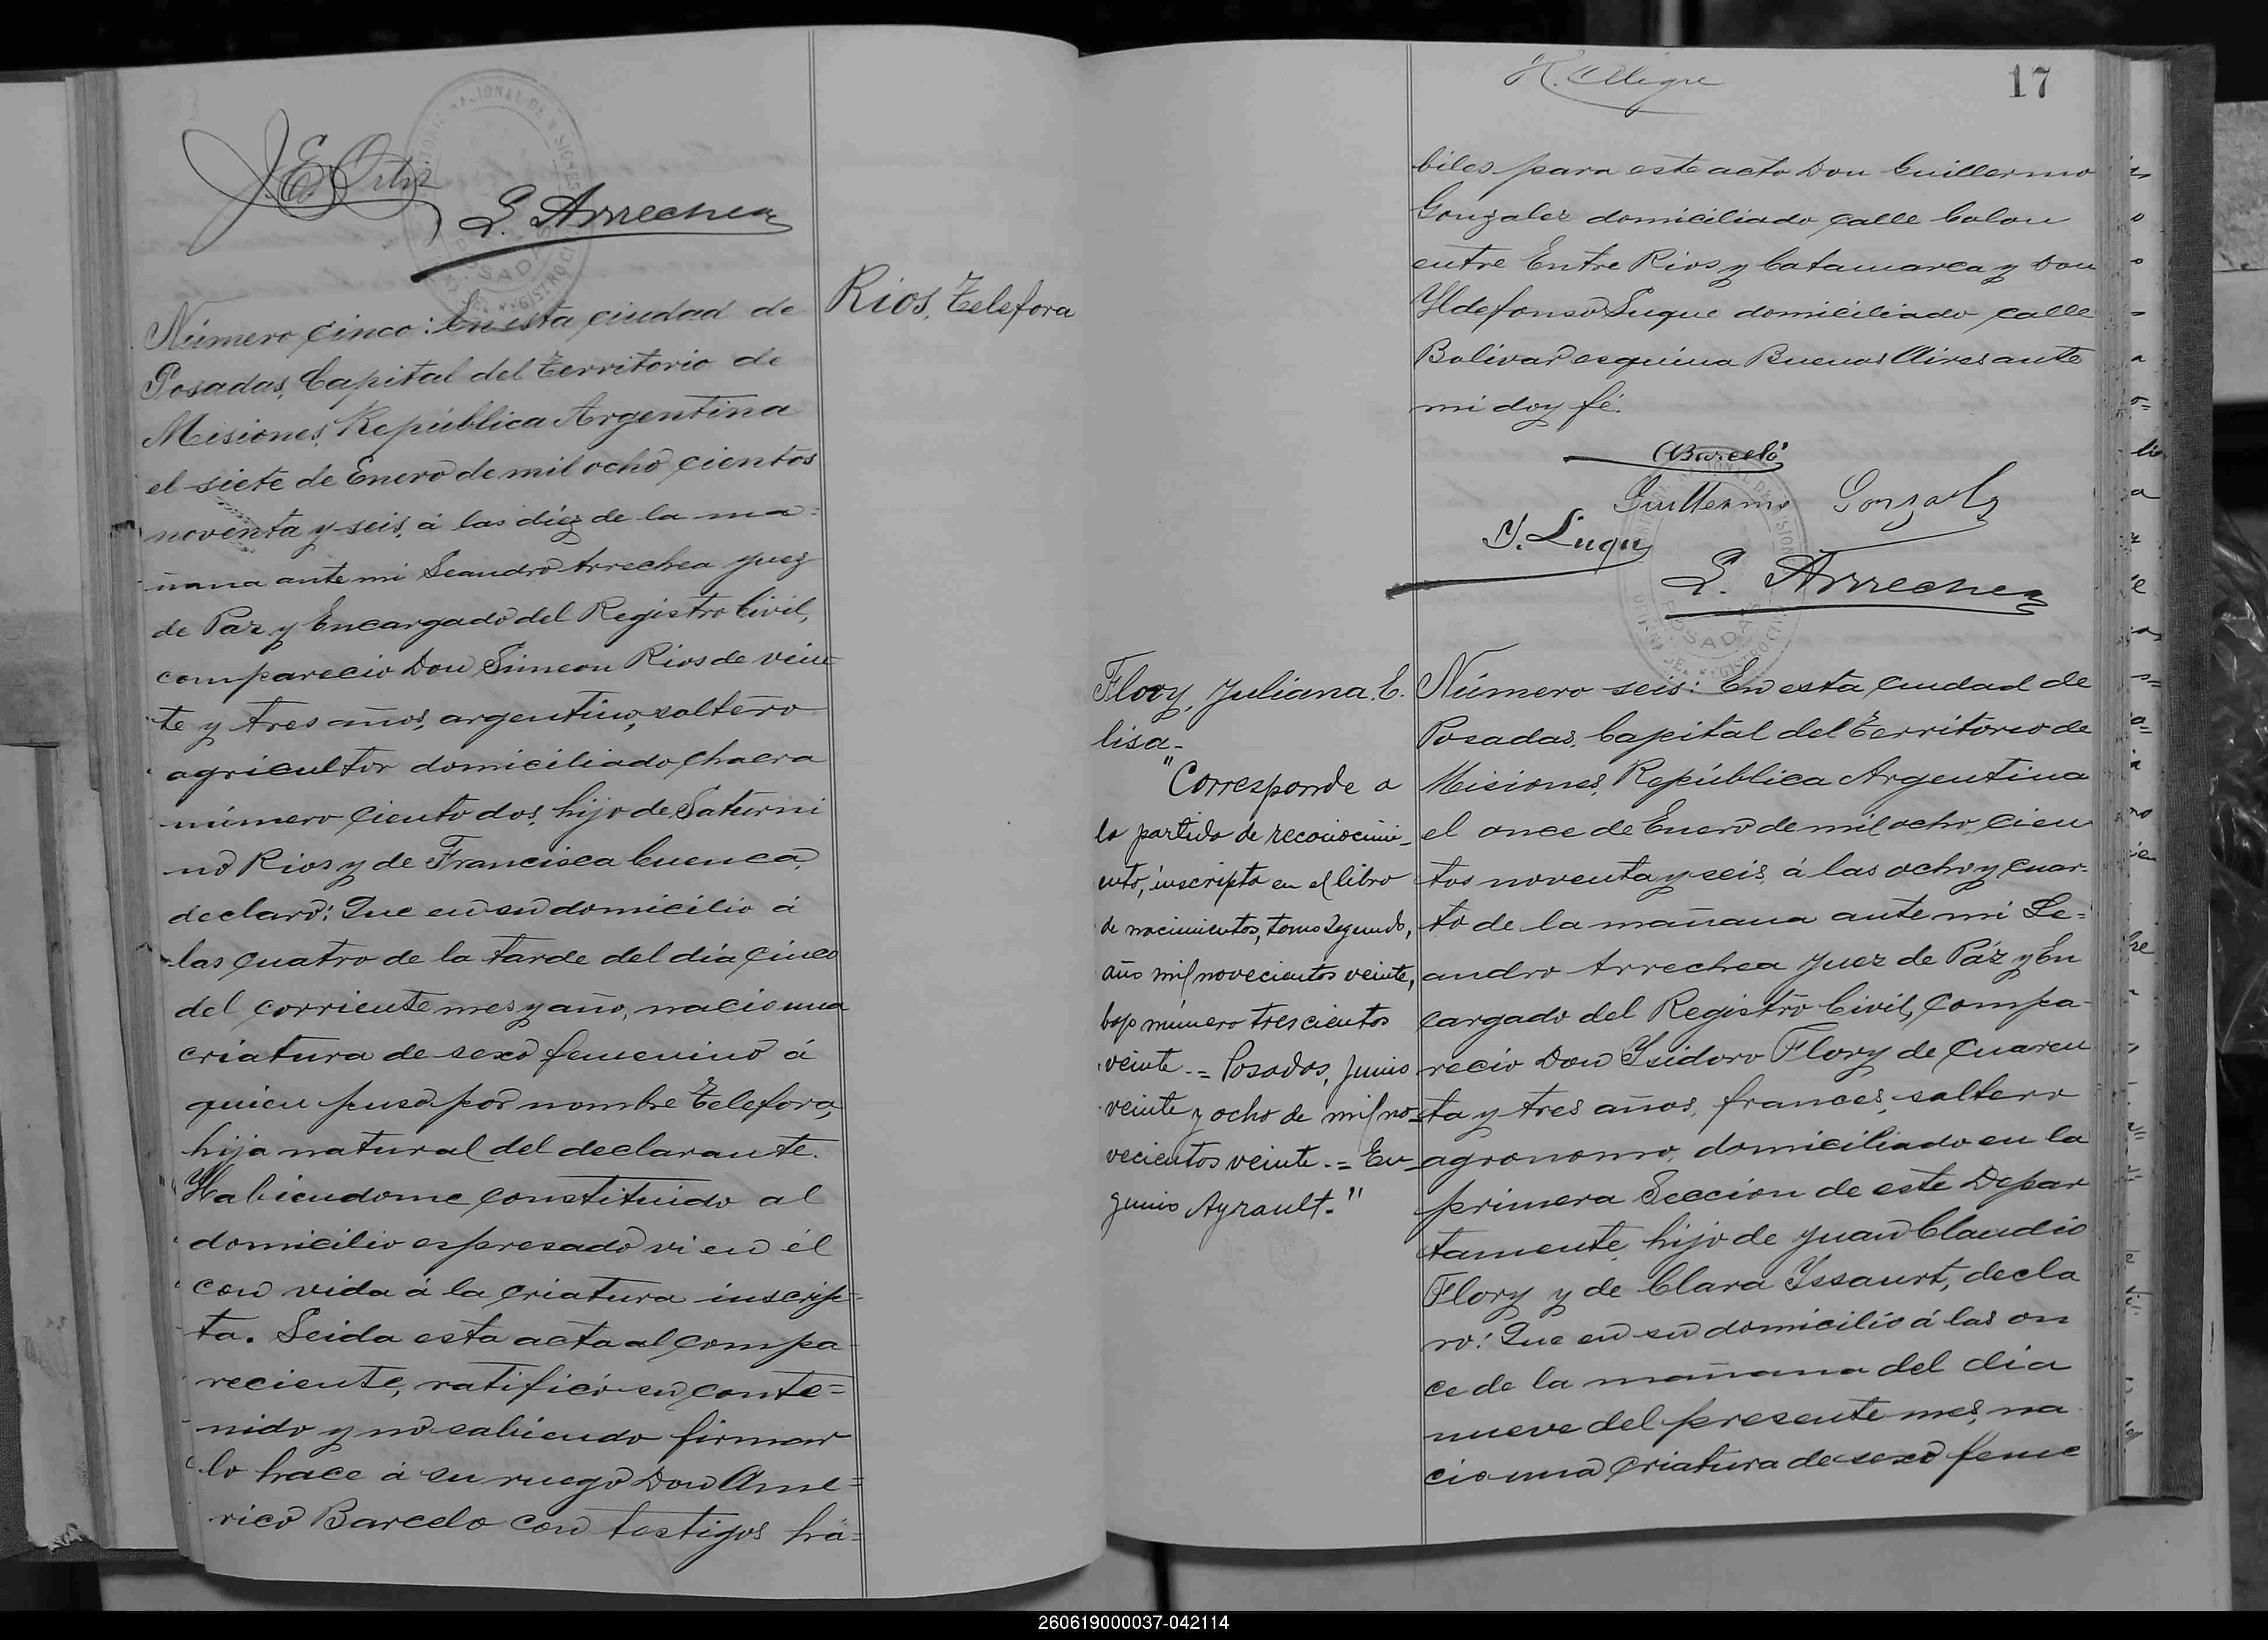 J. E. Ortiz
L. Arrechea
Rios, Telefora
Número cinco: En esta ciudad de
Posadas, Capital del Territorio de
Misiones, República Argentina
el siete de Enero de mil ocho cientos
noventa y seis, á las diez de la ma=
ñana ante mi Leandro Arrechea Juez
de Paz y Encargado del Registro Civil,
comparecio Don Simeon Rios de vein
te y tres años, argentino, soltero
agricultor domiciliado chacra
número ciento dos, hijo de Saturni
no Rios y de Francisca Cuenca,
declaró: Que en su domicilio á
las cuatro de la tarde del día cinco
del corriente mes y año, nacio una
criatura de sexo femenino á
quien puso por nombre Telefora,
hija natural del declarante.
Habiendome constituido al
domicilio espresado vi en él
con vida á la criatura inscrip=
ta. Leida esta acta al compa
reciente, ratificó su conte=
nido y no sabiendo firmar
lo hace á su ruego Don Ame=
rico Barcelo con testigos há=
17
biles para este acto Don Guillermo
Gonzalez domiciliado calle Colon
entre Entre Rios y Catamarca y Don
Yldefonso Luque domiciliado calle
Bolivar esquina Buenos Aires ante
mi doy fé.
A Barceló
Guillermo Gonzalez
Y. Luque
L. Arrechea
POSADAS
Flory, Juliana E.
lisa-
"Corresponde a
la partida de reconocimi-
ento, inscripta en el libro
de nacimientos, tomo segundo,
año mil novecientos veinte,
bajo número trescientos
veinte.= Posadas, Junio
veinte y ocho de mil no=
vecientos veinte.= Eu-
genio Ayrault."
Número seis: En esta ciudad de
Posadas, Capital del Territorio de
Misiones, República Argentina
el once de Enero de mil ocho cien
tos noventa y seis, á las ocho y cuar-
to de la mañana ante mi Le=
andro Arrechea Juez de Páz y En
cargado del Registro Civil, compa-
recio Don Ysidoro Flory de cuaren
ta y tres años, frances, soltero
agronomo, domiciliado en la
primera Seccion de este Depar
tamente, hijo de Juan Claudio
Flory y de Clara Yssaurt, decla
ro: Que en su domicilio á las on
ce de la mañana del dia
nueve del presente mes, na
cio una criatura de sexo feme
260619000037-042114